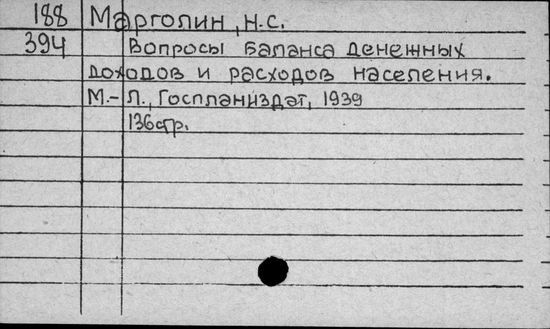 188 Марголин, н.с.
394 Вопросы баланса денежных
доходов и расходов населения.
М.-Л., Госпланиздат, 1939
136 стр.